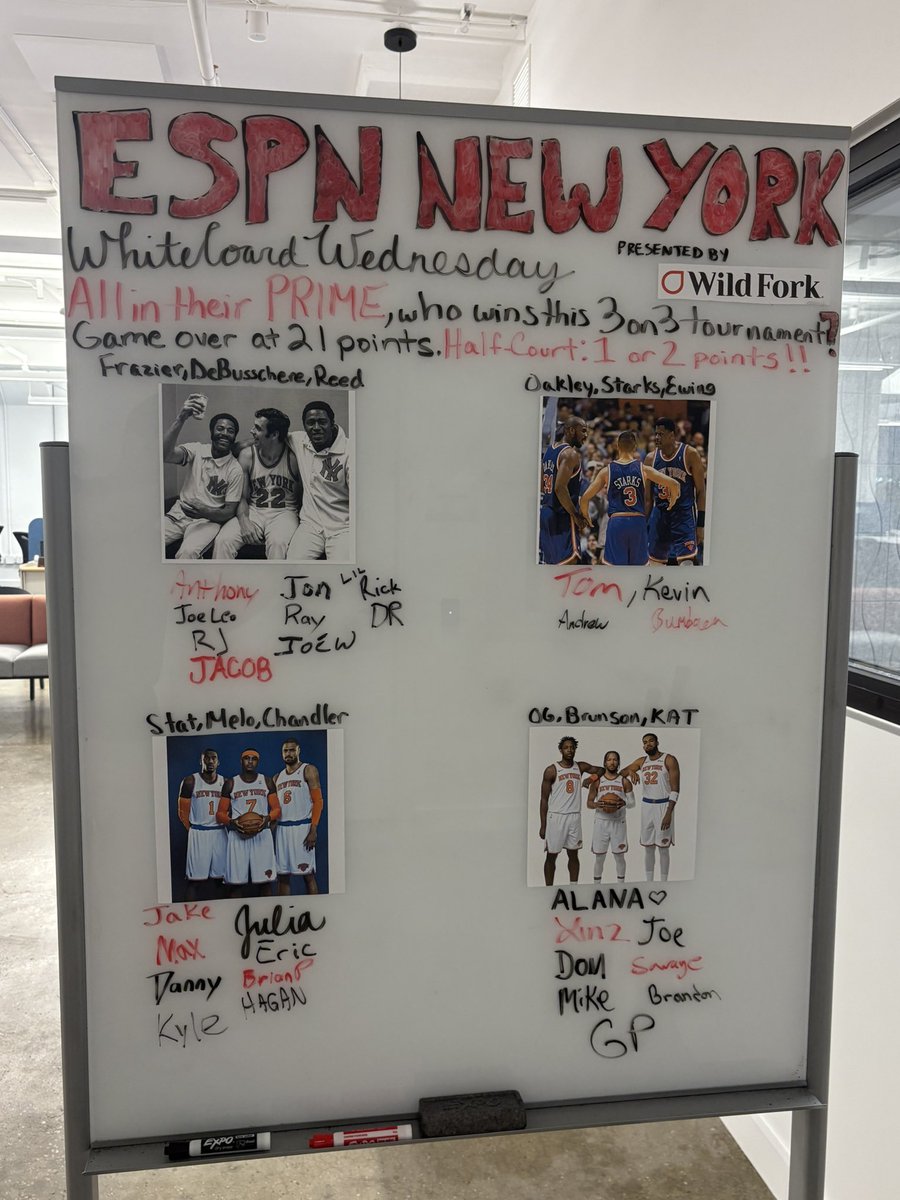 ESPN NEW YORK
Whiteboard Wednesday
PRESENTED BY
Wild Fork
All in their PRIME, who wins this 3 on 3 tournament?
Game over at 21 points. Half-Court: 1 or 2 points!!
Frazier, DeBusschere, Reed
NEW YORK
22
Anthony Jon LIL Rick
Joe Leo Ray DR
RJ JOEW
JACOB
Oakley, Starks, Ewing
STARKS
3
Tom, Kevin
Andrew
Stat, Melo, Chandler
NEW YORK NEW YORK NEW YORK
1 7 6
Jake Julia
Max Eric
Danny Brian P
Kyle HAGAN
OG, Brunson, KAT
NEW YORK NEW YORK
8 32
ALANA♡
Joe
DOM Savage
Mike Brandon
GP
EXPO